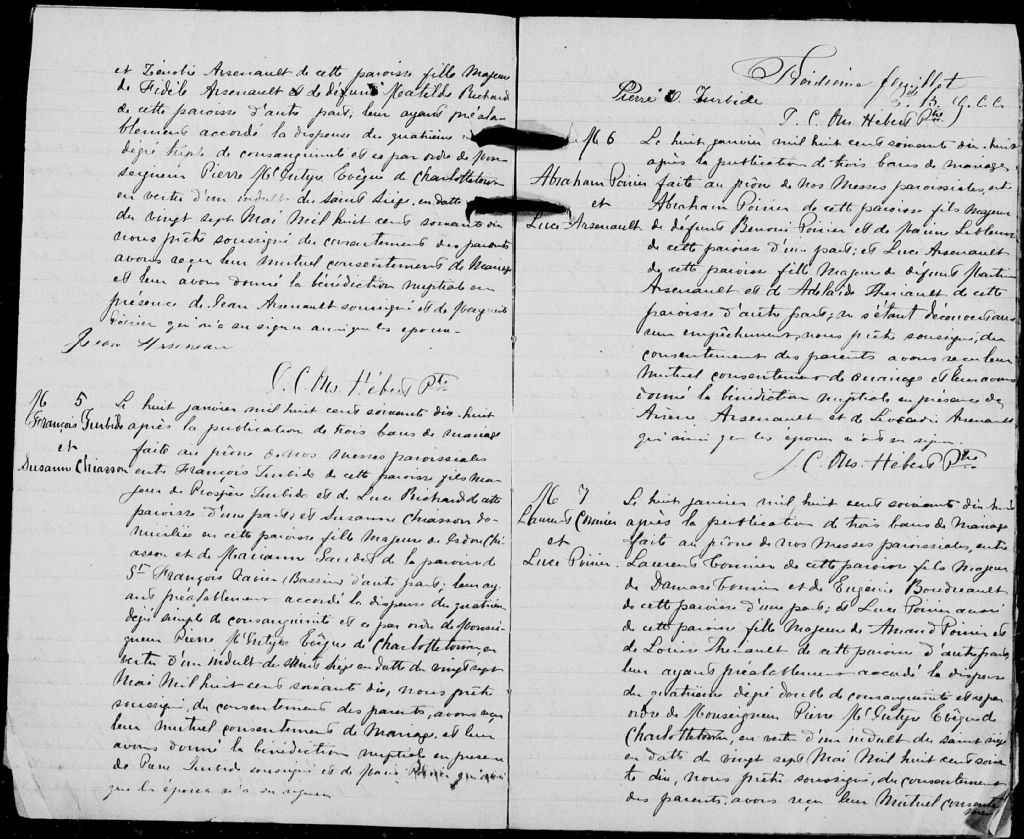 et Zénobie Arsenault de cette paroisse fille Majeure
de Fidèle Arsenault et de défunte Matilde Richard
de cette paroisse d'autre part, leur ayant préala-
blement accordé la dispense du quatrième
dégré triple de consanguinité et ce par ordre de Mon-
seigneur Pierre McIntyre Evêque de Charlottetown
en vertu d'un indult du saint Siége, en datte
du vingt sept Mai Mil huit cent soixante dix
nous prêtre soussigné du consentement des parents
avons reçu leur mutuel consentement de Mariage
et leur avons donné la bénédiction nuptiale en
présence de Jean Arsenault soussigné et de Marguerite
Poirier qui n'a su signer ainsi que les époux.
Jean Arseneau
J. C. Ms. Hébert Ptre
M 5
François Turbide
et
Susanne Chiasson
Le huit janvier mil huit cent soixante dix-huit
après la publication de trois bans de mariage
faite au prône de nos messes paroissiales
entre François Turbide de cette paroisse fils Ma-
jeur de Prospère Turbide et de Luce Richard de cette
paroisse d'une part; et Susanne Chiasson do-
miciliée en cette paroisse fille Majeure de Isidore Chi-
asson et de Marianne Gaudet de la paroisse de
St François Xavier (Bassin) d'autre part; leur ay-
ant préalablement accordé la dispense du quatrième
dégré simple de consanguinité et ce par ordre de Monsei-
gneur Pierre McIntyre Evêque de Charlottetown, en
vertu d'un indult du saint siége en datte du vingt sept
Mai Mil huit cent soixante dix, nous prêtre
soussigné, du consentement des parents, avons reçu
leur mutuel consentement de Mariage, et leur
avons donné la bénédiction nuptiale en présence
de Pierre Turbide soussigné et de Marie qui ainsi
que les époux n'a su signer
Troisième feuillet
Pierre Turbide
J. C. Ms. Hébert Ptre
M 6
Abraham Poirier
et
Luce Arsenault
Le huit janvier mil huit cent soixante dix-huit
après la publication de trois bans de mariage
faite au prône de nos Messes paroissiales, entre
Abraham Poirier de cette paroisse fils Majeur
de défunt Benoni Poirier et de Marie Leblanc
de cette paroisse d'une part; et Luce Arsenault
de cette paroisse fille Majeure de défunt Martin
Arsenault et de Adelaïde Theriault de cette
paroisse d'autre part, ne s'étant découvert au-
cun empêchement, nous prêtre soussigné, du
consentement des parents avons reçu leur
mutuel consentement de mariage et leur avons
donné la bénédiction nuptiale en présence de
Arsenault et de Léocadie Arsenault
qui ainsi que les époux n'ont su signer.
J. C. Ms. Hébert Ptre
M 7
Laurent Cormier
et
Luce Poirier.
Le huit janvier mil huit cent soixante dix huit
après la publication de trois bans de mariage
faite au prône de nos messes paroissiales, entre
Laurent Cormier de cette paroisse fils Majeur
de Damase Cormier et de Eugénie Boudreault
de cette paroisse d'une part; et Luce Poirier aussi
de cette paroisse fille Majeure de Amand Poirier et
de Louise Theriault de cette paroisse d'autre part,
leur ayant préalablement accordé la dispense
du quatrième dégré double de consanguinité et ce par
ordre de Monseigneur Pierre McIntyre Evêque de
Charlottetown, en vertu d'un indult du saint siége
en datte du vingt sept Mai Mil huit cent soixan-
te dix, nous prêtre soussigné, du consentement
des parents, avons reçu leur mutuel consente-